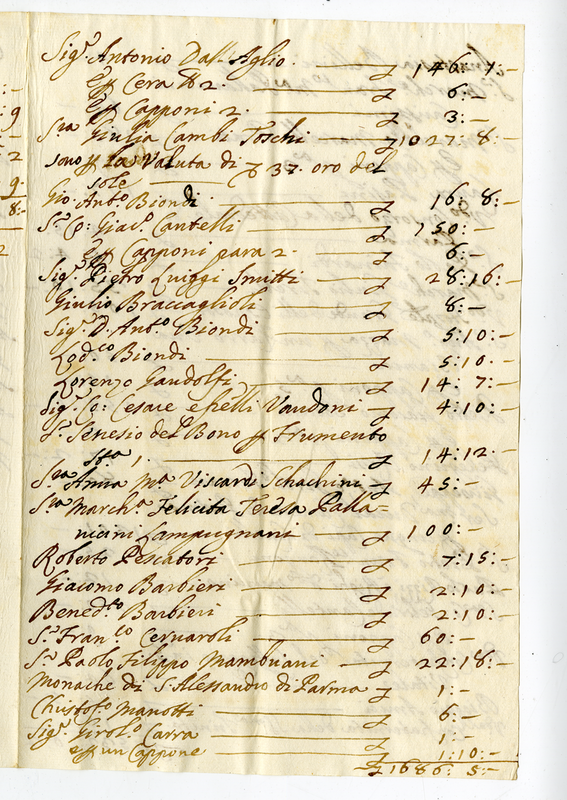 9
2
9.
8:
2
Sig.r Antonio Dall'Aglio. £ 146: 1:–
e p Cera ℔ 2. £ 6:–
e p Capponi 2. £ 3:–
S.ra Giulia Cambi Toschi £ 1027: 8:–
sono p la Valuta di 37. oro del
sole
Gio: Ant.o Biondi £ 16: 8:–
S.r Co: Giac.o Cantelli £ 150:–
e p Capponi para 2. £ 6:–
Sig.r Pietro Luiggi Smitti £ 28:16:–
Giulio Braccaglioli £ 8:–
Sig.r D. Ant.o Biondi £ 5:10:–
Lod.co Biondi £ 5:10:–
Lorenzo Gandolfi £ 14: 7:–
Sig.r Co: Cesare e frelli Vandoni £ 4:10:–
S.r Senesio del Bono p Frumento
St.a 1. £ 14:12:–
S.ra Anna M.a Viscardi Schachini £ 45:–
S.ra March.a Felicita Teresa Palla=
uicini Lampugnani £ 100:–
Roberto Pescatori £ 7:15:–
Giacomo Barbieri £ 2:10:–
Bened.to Barbieri £ 2:10:–
S.r Fran.co Ceruaroli £ 60:–
S.r Paolo Filippo Mambriani £ 22:18:–
Monache di S. Alessandro di Parma £ 1:–
Christof.o Manotti £ 6:–
Sig.r Girol.o Carra £ 1:–
e p un Cappone £ 1:10:–
£ 1686: 5:–